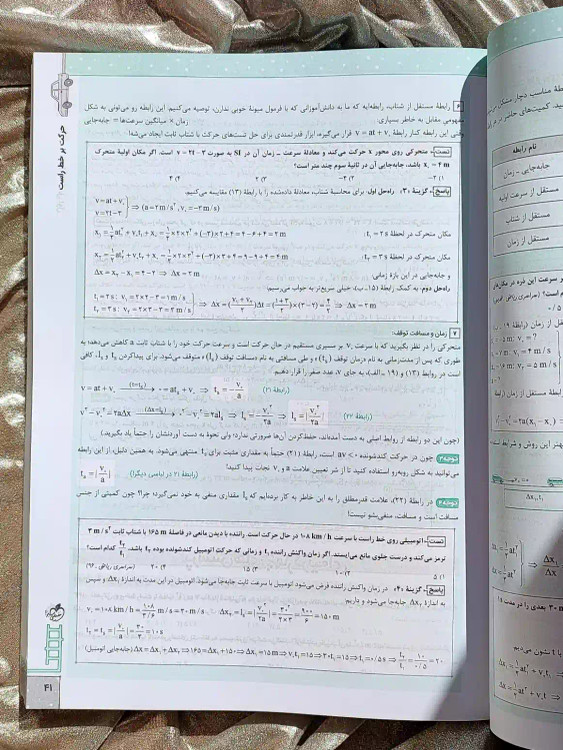 ۶ رابطهٔ مستقل از شتاب، رابطه‌ایه که ما به دانش‌آموزانی که با فرمول میونهٔ خوبی ندارن، توصیه می‌کنیم. این رابطه رو می‌تونی به شکل
مفهومی مقابل به خاطر بسپاری: زمان × میانگین سرعت‌ها = جابه‌جایی
وقتی این رابطه کنار رابطهٔ v = at + v₀ قرار می‌گیره، ابزار قدرتمندی برای حل تست‌های حرکت با شتاب ثابت ایجاد می‌شه!
تست: متحرکی روی محور x حرکت می‌کند و معادلهٔ سرعت ـ زمان آن در SI به صورت v = ۲t − ۳ است. اگر مکان اولیهٔ متحرک
x₀ = ۴ m باشد، جابه‌جایی آن در ثانیهٔ سوم چند متر است؟
پاسخ: گزینهٔ «۳» راه‌حل اول: برای محاسبهٔ شتاب، معادلهٔ داده‌شده را با رابطهٔ (۱۳) مقایسه می‌کنیم.
v = at + v₀
v = ۲t − ۳ ⇒ (a = ۲ m/s², v₀ = −۳ m/s)
مکان متحرک در لحظهٔ t₁ = ۲ s: x₁ = ½at₁² + v₀t₁ + x₀ = ½×۲×۲² + (−۳)×۲ + ۴ = ۴ − ۶ + ۴ = ۲ m
مکان متحرک در لحظهٔ t₂ = ۳ s: x₂ = ½at₂² + v₀t₂ + x₀ = ½×۲×۳² + (−۳)×۳ + ۴ = ۹ − ۹ + ۴ = ۴ m
و جابه‌جایی در این بازهٔ زمانی: Δx = x₂ − x₁ = ۴ − ۲ ⇒ Δx = ۲ m
راه‌حل دوم: به کمک رابطهٔ (۱۵ـ ب)، خیلی سریع‌تر به جواب می‌رسیم:
t₁ = ۲ s: v₁ = ۲×۲ − ۳ = ۱ m/s
t₂ = ۳ s: v₂ = ۲×۳ − ۳ = ۳ m/s
⇒ Δx = (v₁ + v₂ / ۲)Δt = (۱ + ۳ / ۲)×(۳ − ۲) = ۴/۲ ⇒ Δx = ۲ m
۷ زمان و مسافت توقف:
متحرکی را در نظر بگیرید که با سرعت v₀ بر مسیری مستقیم در حال حرکت است و سرعت حرکت خود را با شتاب ثابت a کاهش می‌دهد؛ به
طوری که پس از مدت‌زمانی به نام «زمان توقف (tₛ)» و طی مسافتی به نام «مسافت توقف (lₛ)» متوقف می‌شود. برای پیداکردن tₛ و lₛ، کافی
است در روابط (۱۳) و (۱۹ـ الف)، به جای v، عدد صفر را قرار دهیم:
v = at + v₀ (t = tₛ) ⟶ ۰ = atₛ + v₀ ⇒ tₛ = −v₀/a رابطهٔ (۲۱)
v² − v₀² = ۲aΔx (Δx = lₛ) ⟶ ۰ − v₀² = ۲alₛ ⇒ lₛ = −v₀²/۲a ⇒ lₛ = |v₀²/۲a| رابطهٔ (۲۲)
(چون این دو رابطه از روابط اصلی به دست آمده‌اند، حفظ‌کردن آن‌ها ضرورتی ندارد؛ ولی نحوهٔ به دست آوردنشان را حتماً یاد بگیرید.)
توجه ۱ چون در حرکت کندشونده av < ۰ است، رابطهٔ (۲۱) حتماً به مقداری مثبت برای tₛ منتهی می‌شود. به همین دلیل، از این رابطه
می‌توانید به شکل روبه‌رو استفاده کنید تا از شر تعیین علامت a و v₀ نجات پیدا کنید!
tₛ = |v₀/a| رابطهٔ (۲۱ در لباسی دیگر!)
توجه ۲ در رابطهٔ (۲۲)، علامت قدرمطلق را به این خاطر به کار برده‌ایم که lₛ مقداری منفی به خود نمی‌گیرد. چرا؟ چون کمیتی از جنس
مسافت است و مسافت، منفی‌بشو نیست!
تست: اتومبیلی روی خط راست با سرعت ۱۰۸ km/h در حال حرکت است. راننده با دیدن مانعی در فاصلهٔ ۱۶۵ m با شتاب ثابت ۳ m/s²
ترمز می‌کند و درست جلوی مانع می‌ایستد. اگر زمان واکنش راننده t₁ و زمانی که حرکت اتومبیل کندشونده بوده t₂ باشد، t₂/t₁ کدام است؟
(سراسری ریاضی ۹۶)
۱) ۵ ۲) ۱۰ ۳) ۱۵ ۴) ۲۰
پاسخ: گزینهٔ «۴» در زمان واکنش راننده فرض می‌شود اتومبیل با سرعت ثابت جابه‌جا می‌شود. اتومبیل در این مدت به اندازهٔ Δx₁ و سپس
به اندازهٔ Δx₂ جابه‌جا می‌شود و داریم:
v₀ = ۱۰۸ km/h = ۱۰۸/۳/۶ m/s = ۳۰ m/s, Δx₂ = lₛ = |v₀²/۲a| = ۳۰²/۲×۳ = ۹۰۰/۶ = ۱۵۰ m
t₂ = tₛ = |v₀/a| = ۳۰/۳ = ۱۰ s
(جابه‌جایی اتومبیل) Δx = Δx₁ + Δx₂ ⇒ ۱۶۵ = Δx₁ + ۱۵۰ ⇒ Δx₁ = ۱۵ m ⇒ v₀t₁ = ۱۵ ⇒ ۳۰t₁ = ۱۵ ⇒ t₁ = ۰/۵ s ⇒ t₂/t₁ = ۱۰/۰/۵ = ۲۰
حرکت بر خط راست
۴۱
نام رابطه
جابه‌جایی ـ زمان
مستقل از سرعت اولیه
مستقل از شتاب
مستقل از زمان